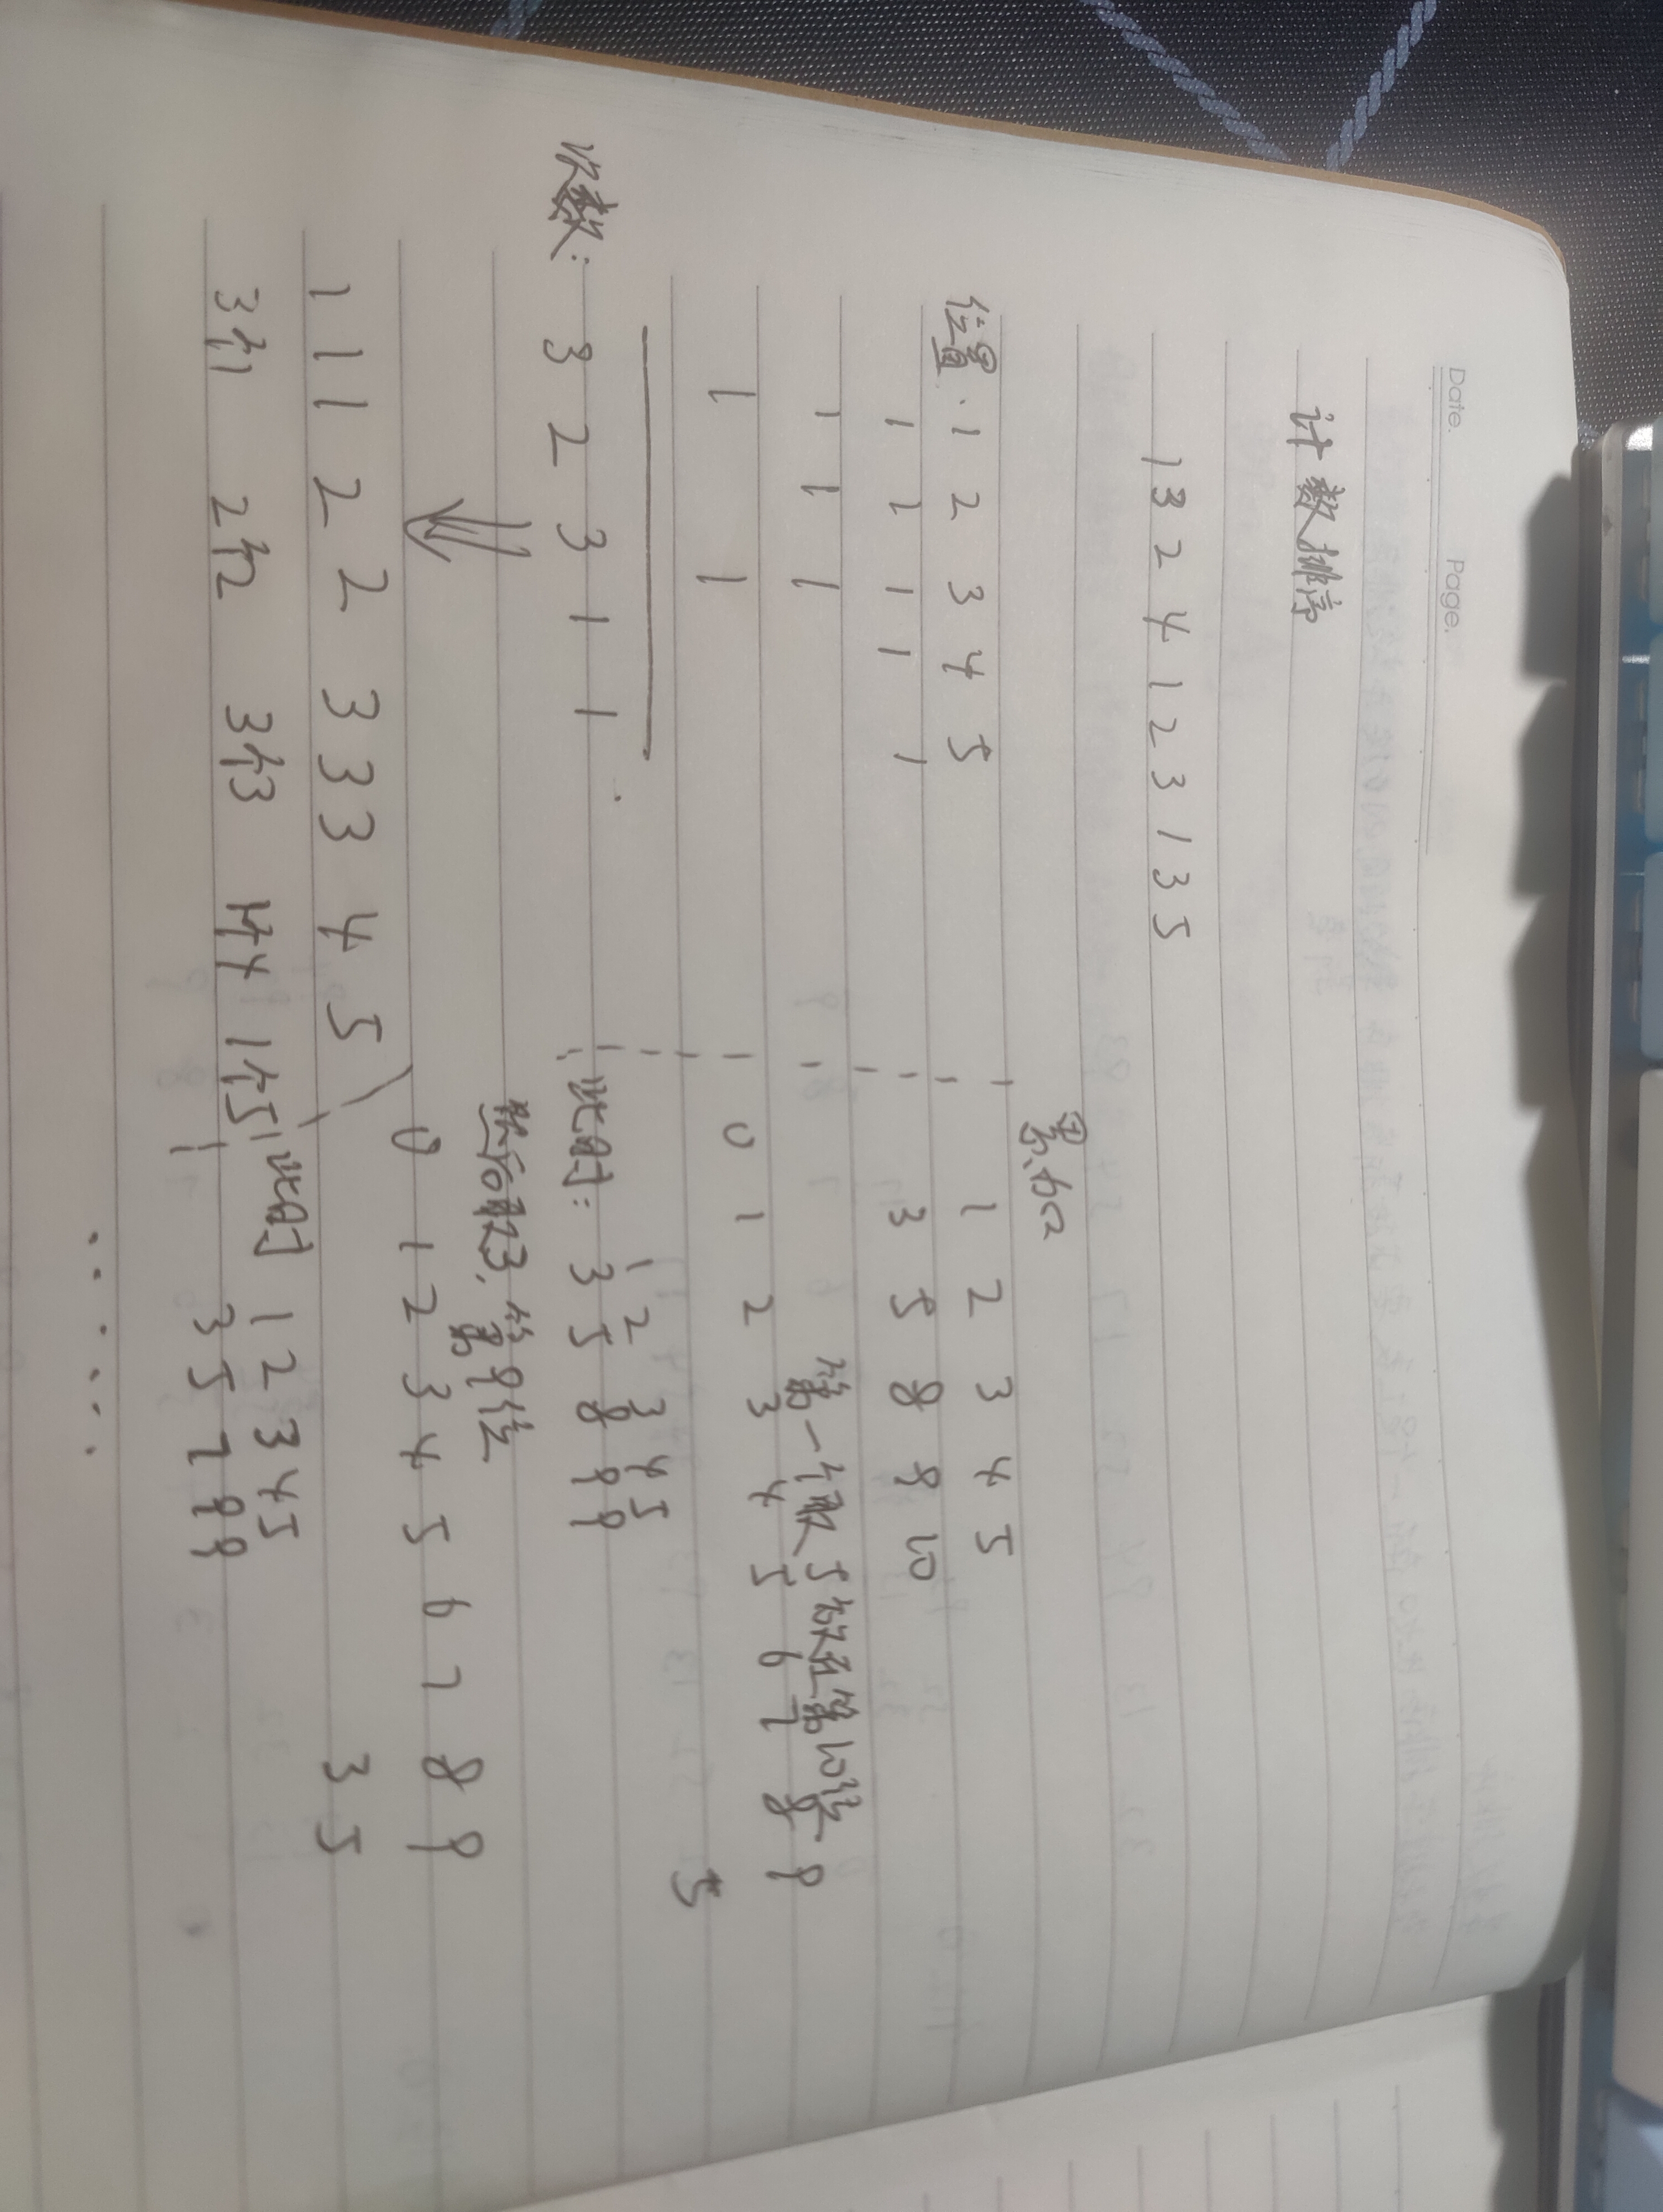 Date. Page.
计数排序
1 3 2 4 1 2 3 1 3 5
位置. 1 2 3 4 5
1 1 1 1 1
1 1 1
1 1
次数: 3 2 3 1 1
1 1 1 2 2 3 3 3 4 5
3个1 2个2 3个3 1个4 1个5
累加
1 2 3 4 5
3 5 8 9 10
第一个取5放在第10位
0 1 2 3 4 5 6 7 8 9
5
1 2 3 4 5
此时: 3 5 8 9 9
然后取3, 第9位
0 1 2 3 4 5 6 7 8 9
3 5
此时 1 2 3 4 5
3 5 7 9 9
......